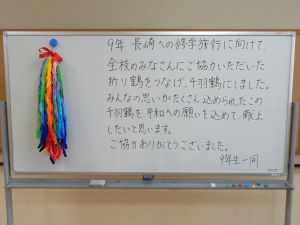 9年 長崎への修学旅行に向けて、
全校のみなさんにご協力いただいた
折り鶴をつなげ、千羽鶴にしました。
みんなの思いがたくさん込められたこの
千羽鶴を、平和への願いを込めて、献上
したいと思います。
ご協力ありがとうございました。
9年生一同